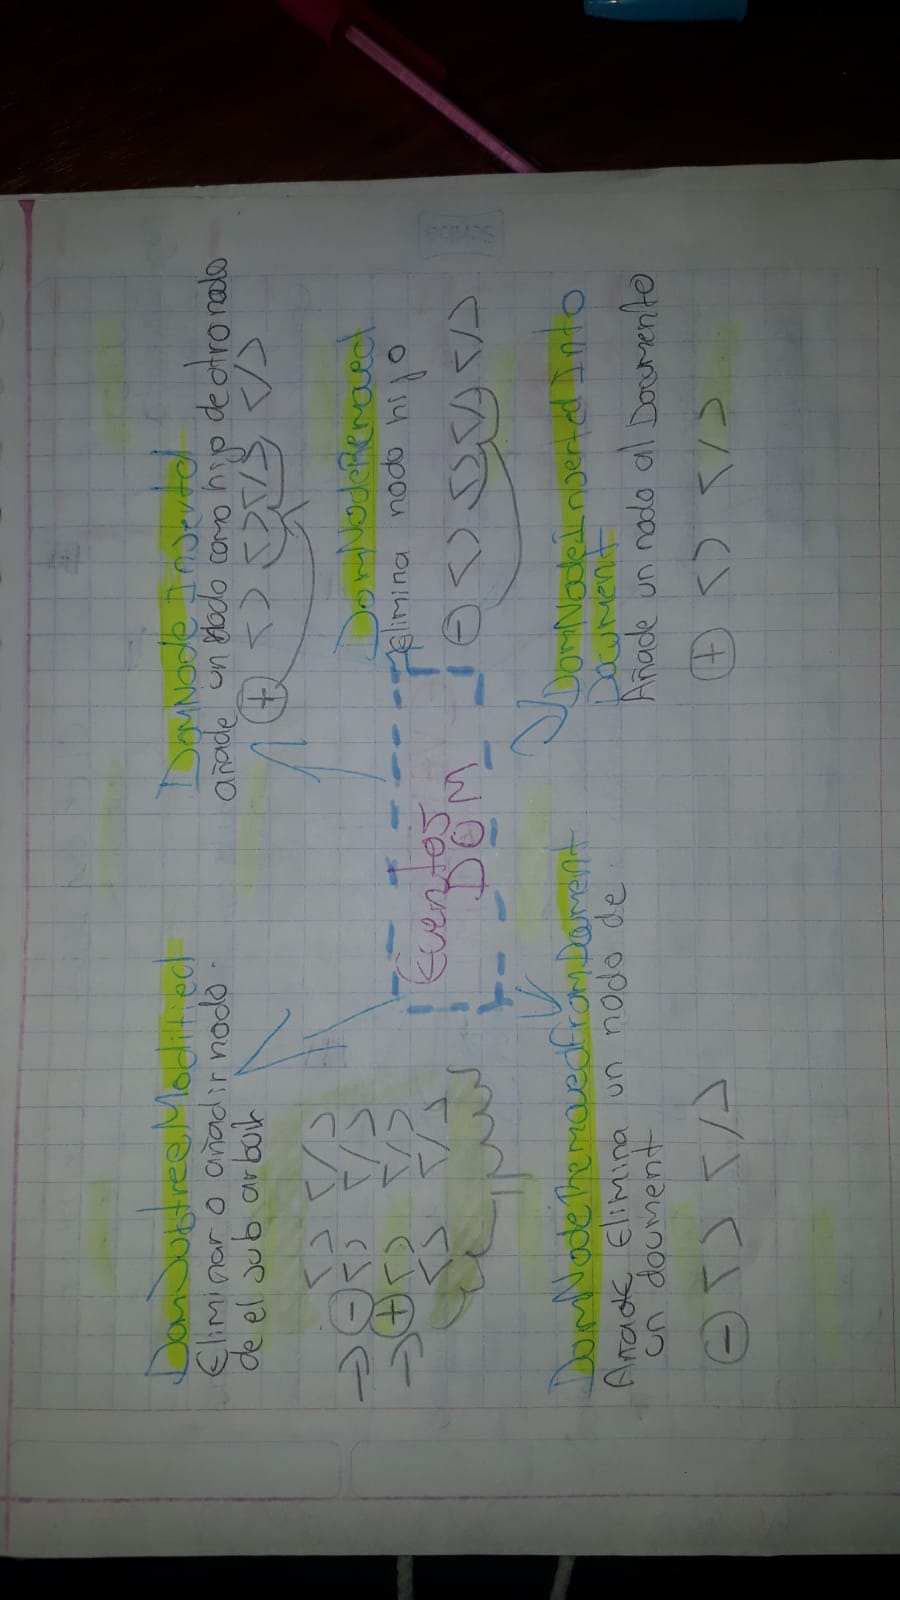 DomSubtreeModified
Eliminar o añadir nodo.
de el sub arbol
→ ⊖ <> </>
→ ⊕ <> </>
DomNodeInserted
añade un nodo como hijo de otro nodo
⊕ <> <></> </>
Eventos
DOM
DomNodeRemoved
Elimina nodo hijo
⊖ <> <></> </>
DomNodeRemovedfromDoment
Elimina un nodo de
un doument
⊖ <> </>
DomNodeInserted Into
Doument
Añade un nodo al Doumento
⊕ <> </>